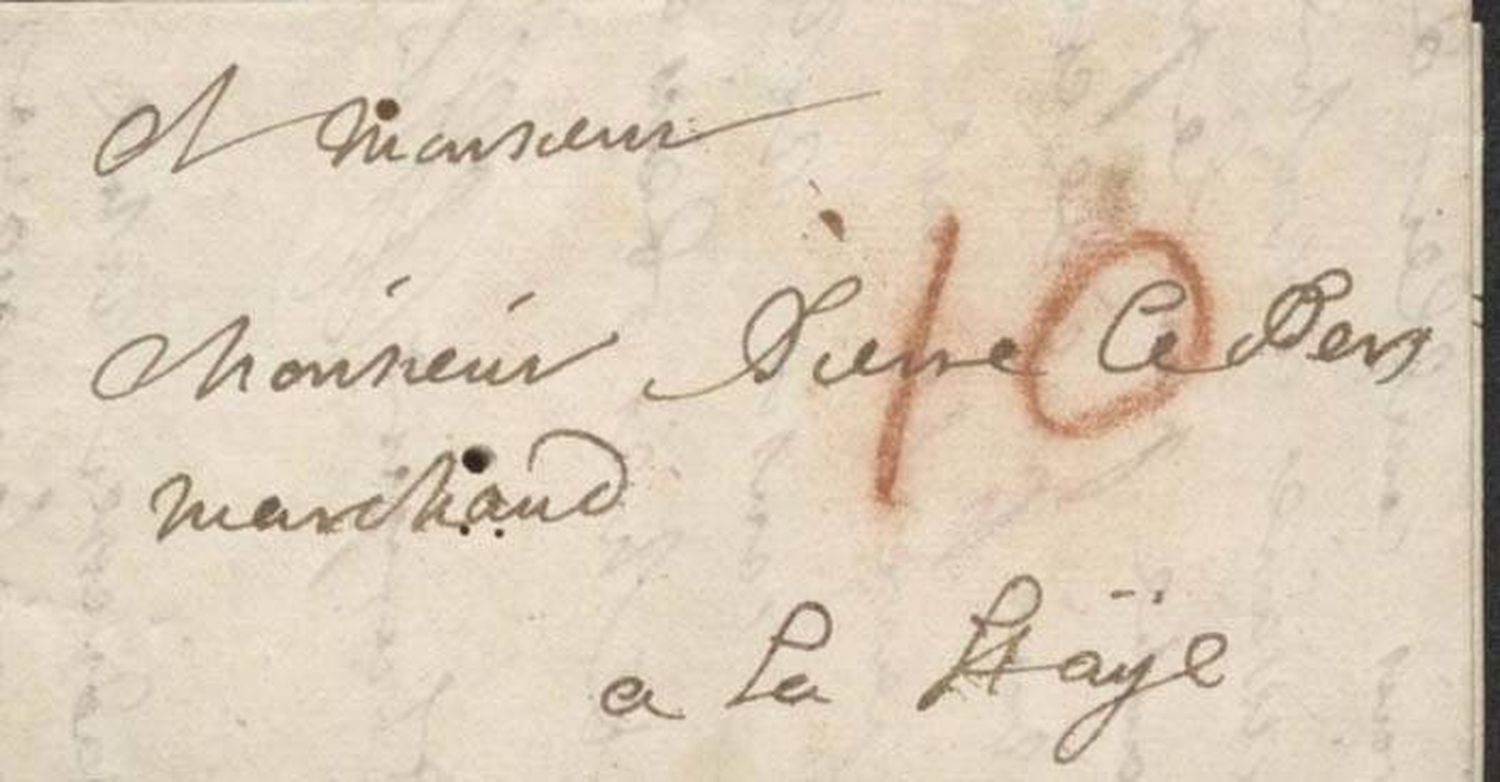 A Monsieur
Monsieur Pierre Ce
10
marchand
a La Haÿe